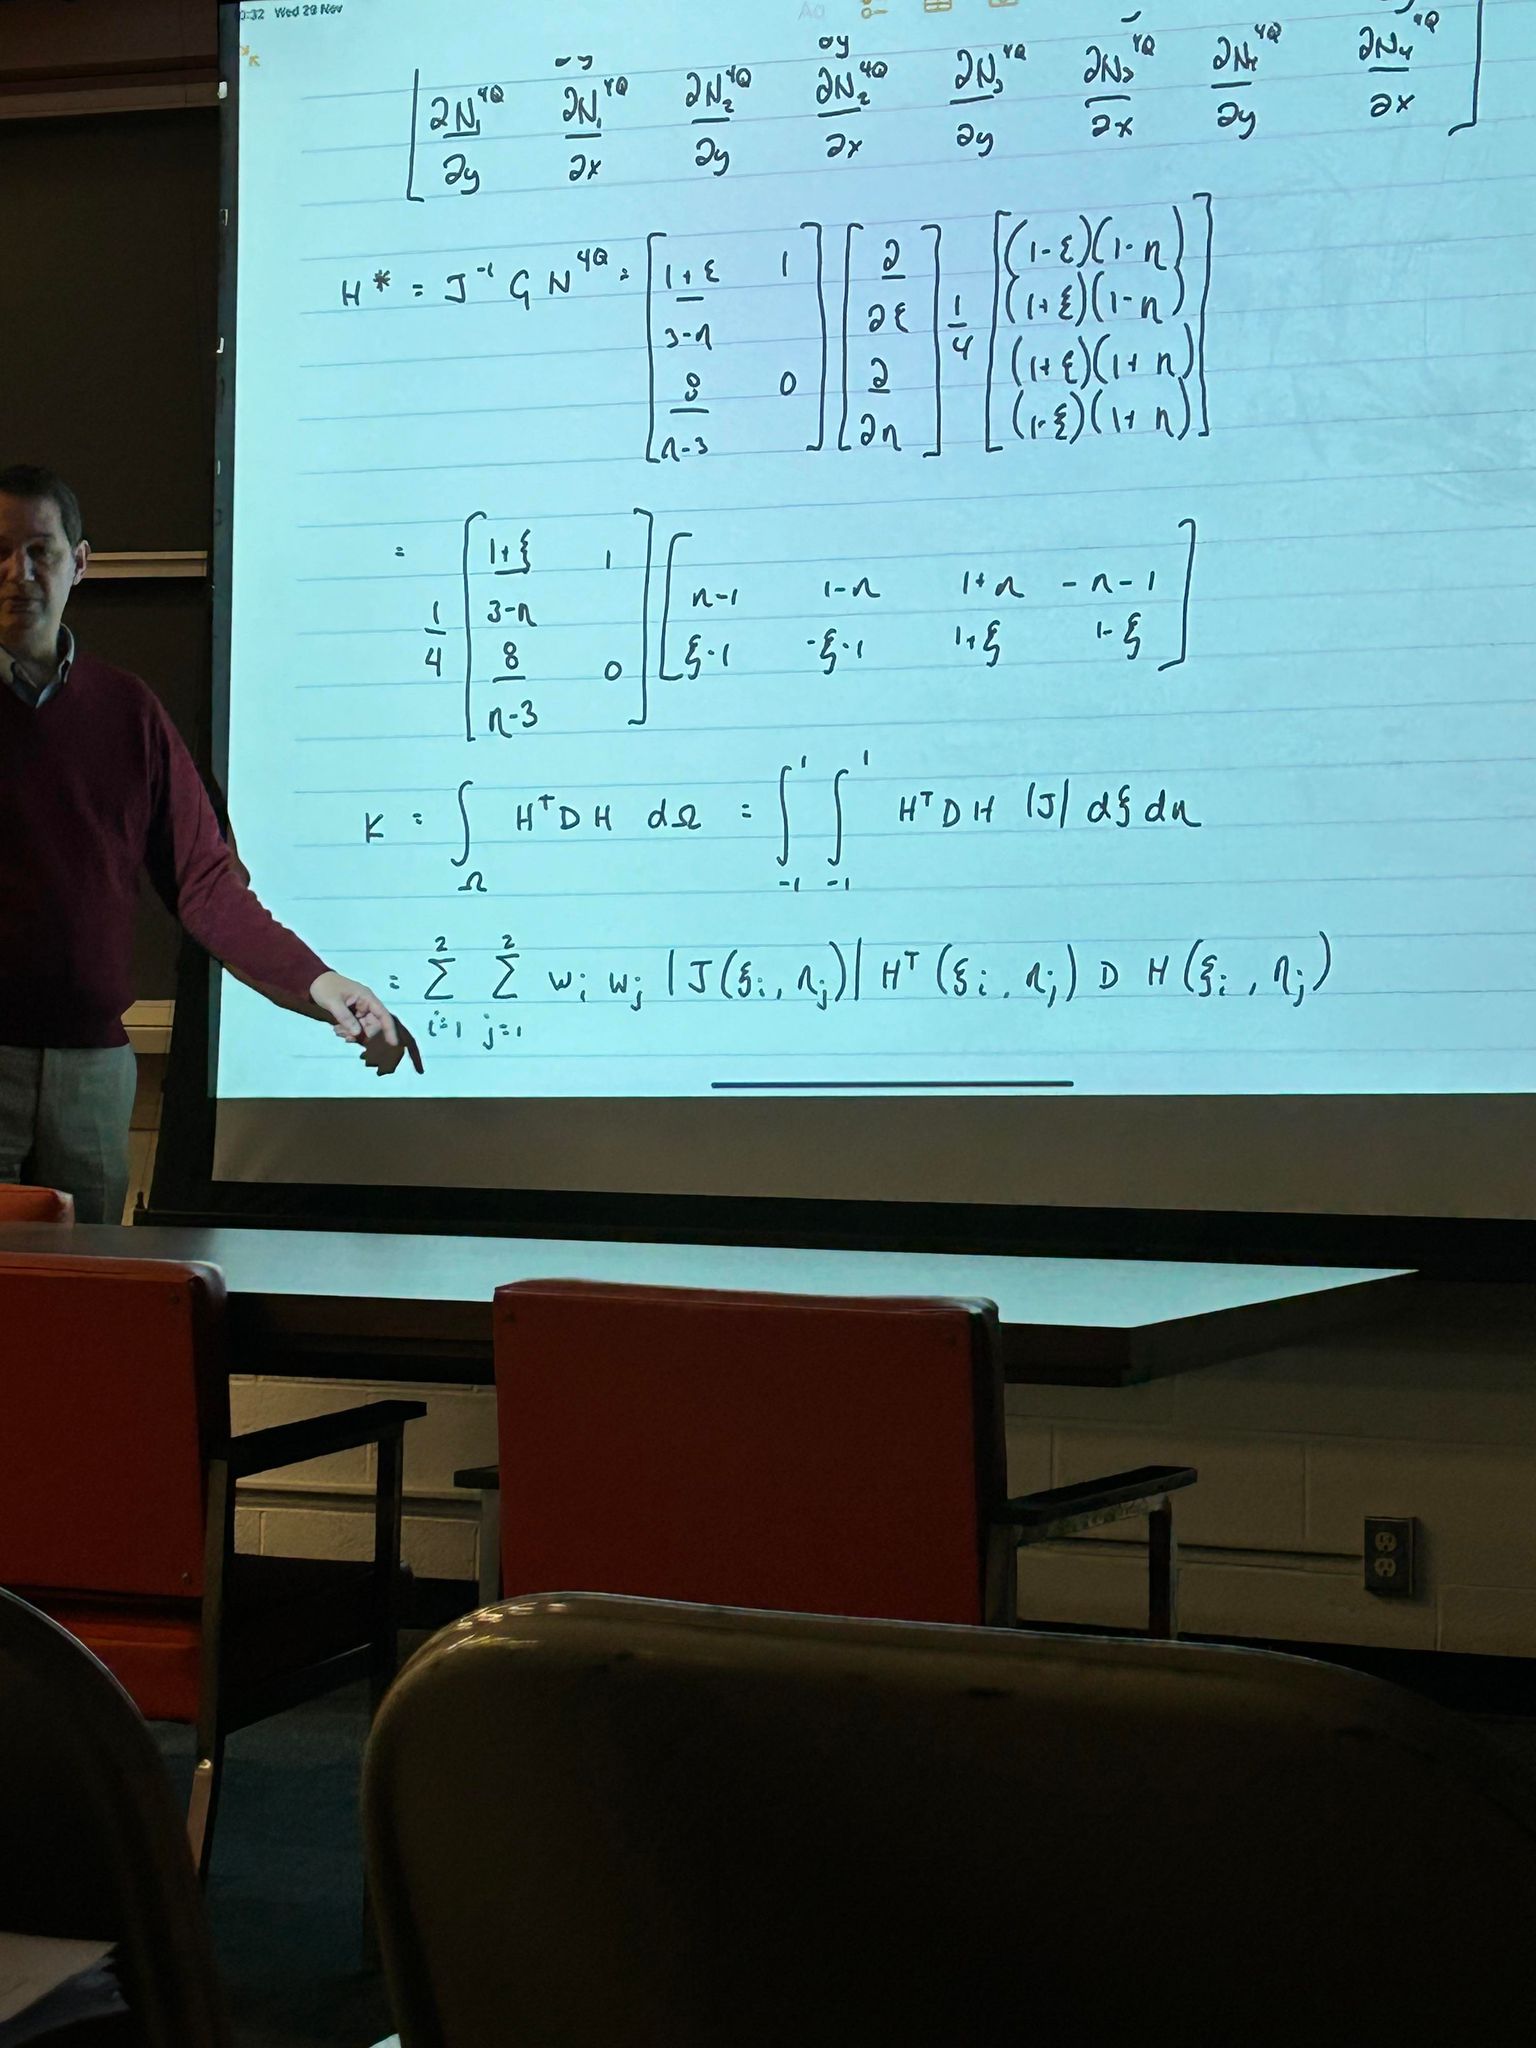 Wed 29 Nov
Aa
∂y
∂N₁^4Q/∂y ∂N₁^4Q/∂x ∂N₂^4Q/∂y ∂N₂^4Q/∂x ∂N₃^4Q/∂y ∂N₃^4Q/∂x ∂N₄^4Q/∂y ∂N₄^4Q/∂x
H* = J⁻¹ G N^4Q = [(1+ξ)/(3-η) 1; 8/(η-3) 0] [∂/∂ξ; ∂/∂η] 1/4 [(1-ξ)(1-η); (1+ξ)(1-η); (1+ξ)(1+η); (1-ξ)(1+η)]
= 1/4 [(1+ξ)/(3-η) 1; 8/(η-3) 0] [η-1 1-η 1+η -η-1; ξ-1 -ξ-1 1+ξ 1-ξ]
K = ∫_Ω HᵀDH dΩ = ∫_{-1}^{1} ∫_{-1}^{1} HᵀDH |J| dξ dη
= Σ_{i=1}^{2} Σ_{j=1}^{2} w_i w_j |J(ξ_i, η_j)| Hᵀ(ξ_i, η_j) D H(ξ_i, η_j)